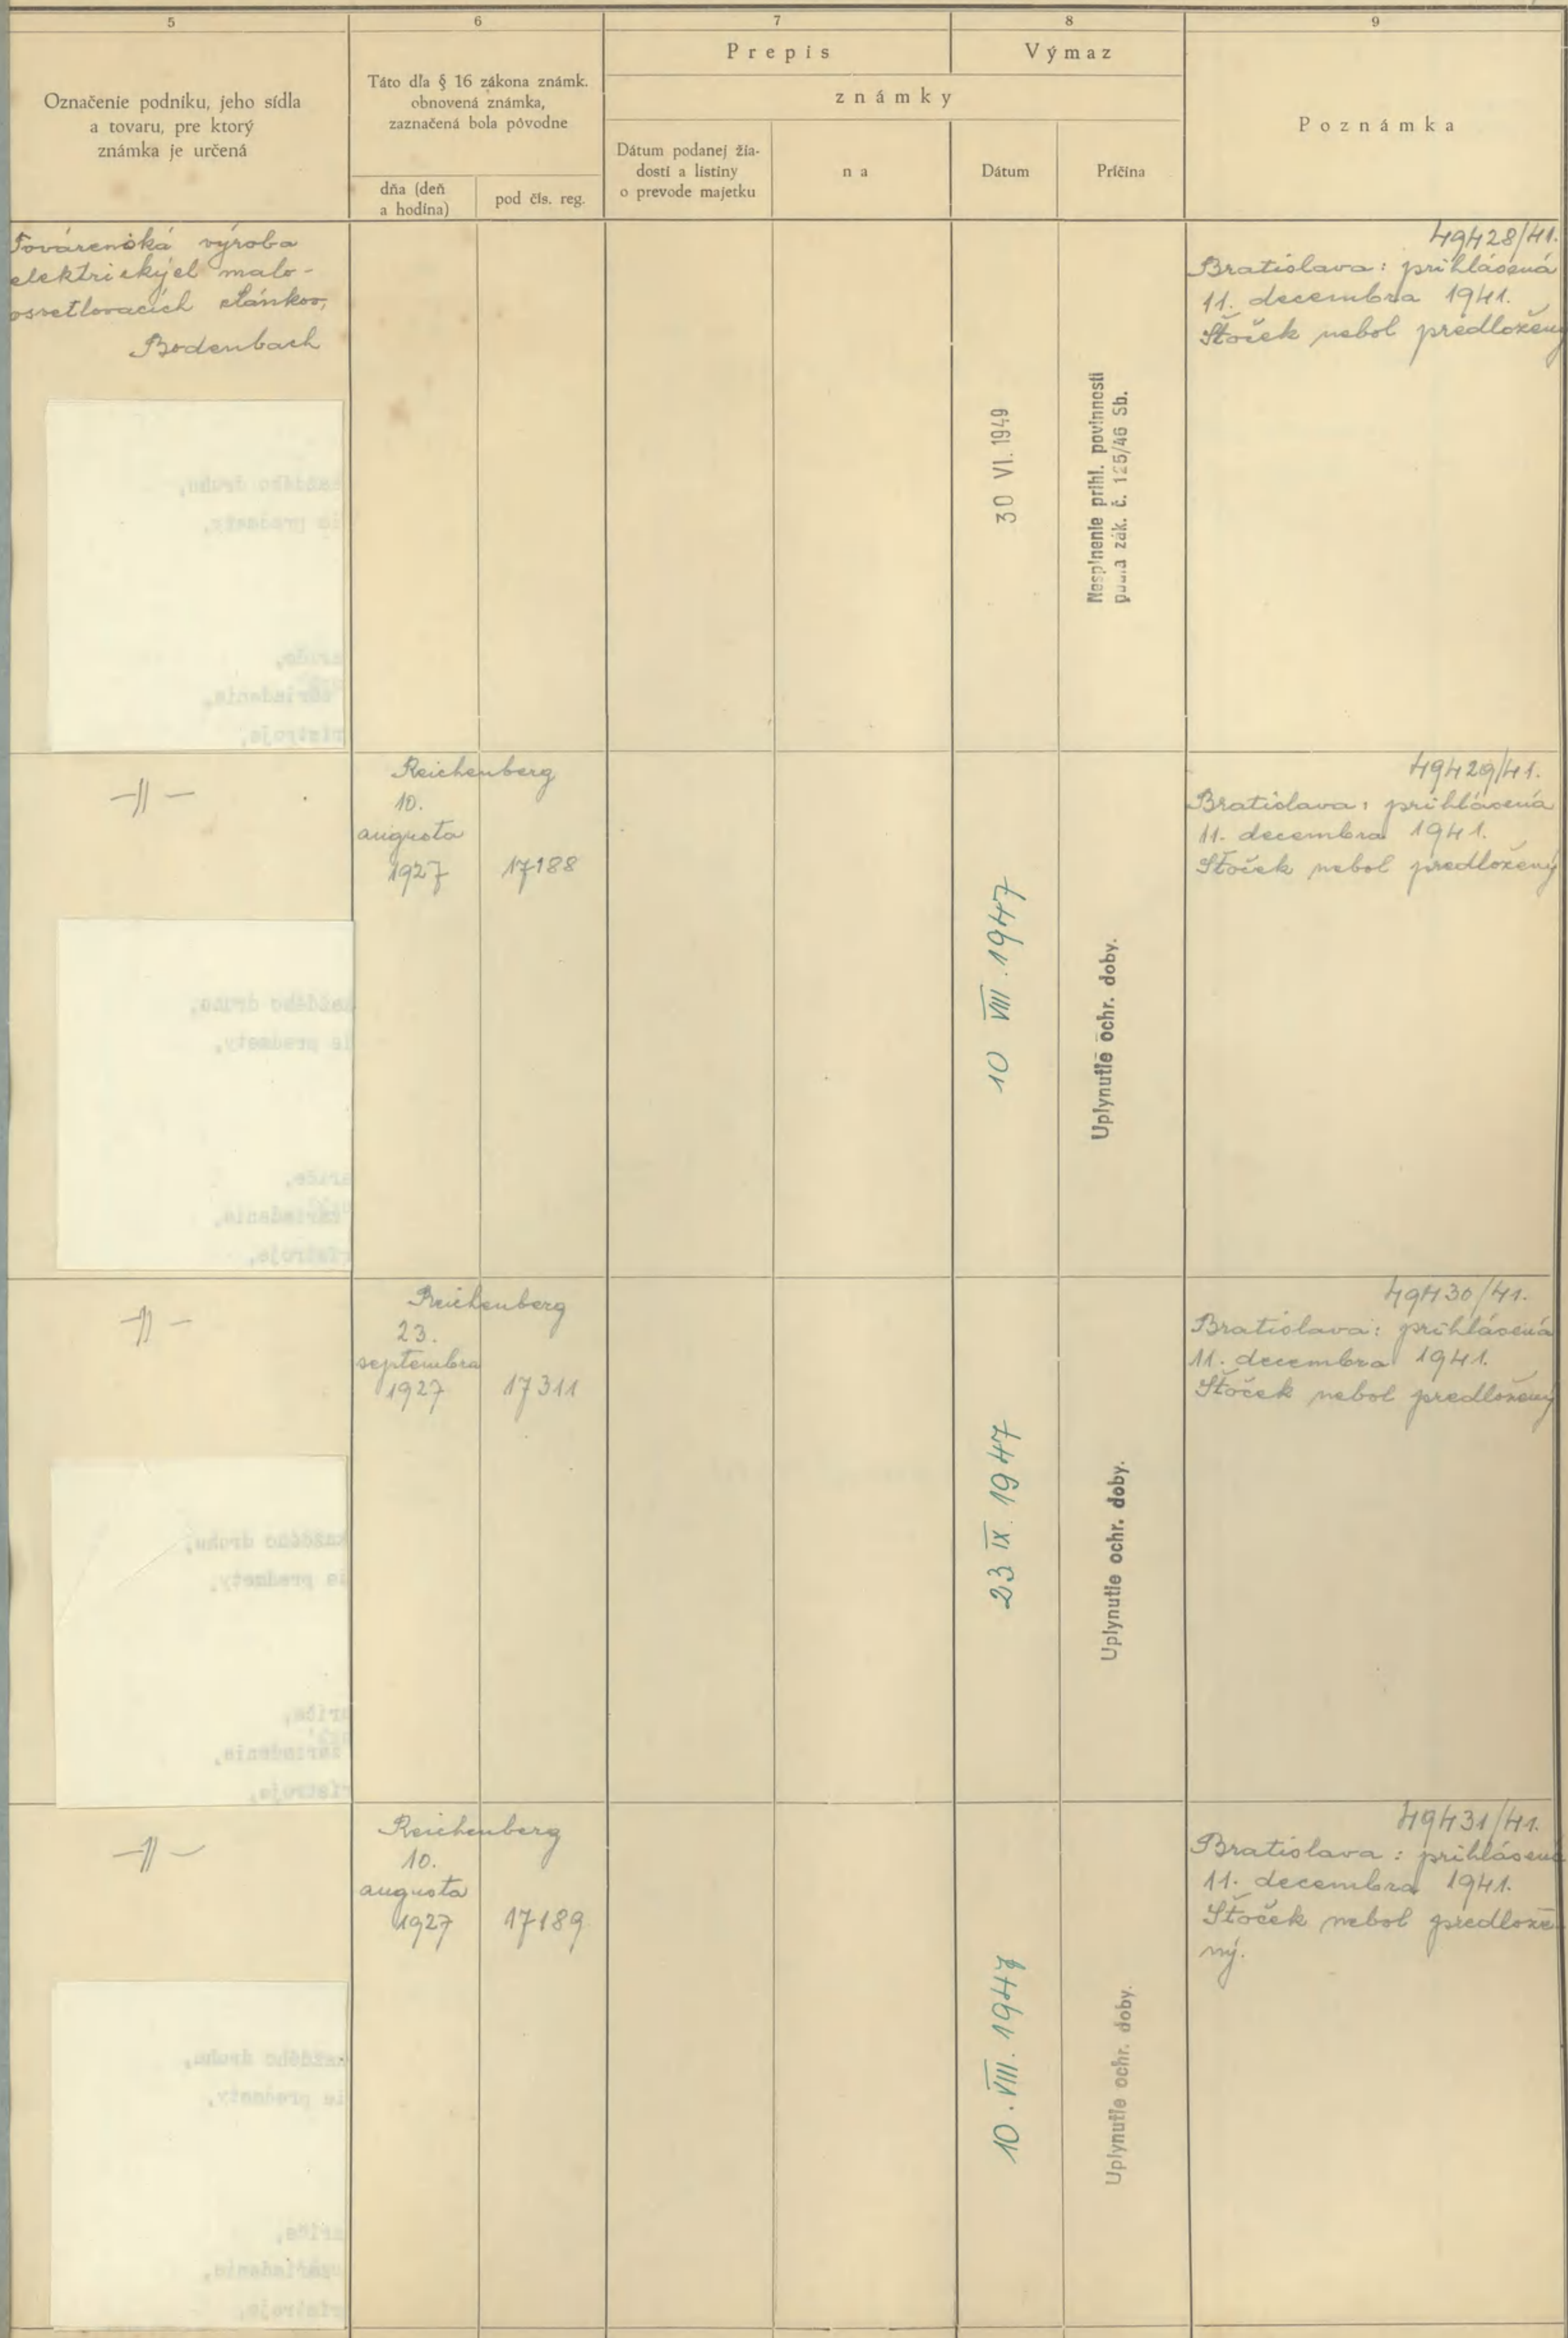 5
6
7
8
9
Označenie podniku, jeho sídla
a tovaru, pre ktorý
známka je určená
Táto dľa § 16 zákona známk.
obnovená známka,
zaznačená bola pôvodne
dňa (deň
a hodina)
pod čís. reg.
Prepis
Výmaz
známky
Dátum podanej žia-
dosti a listiny
o prevode majetku
na
Dátum
Príčina
Poznámka
Továrenská výroba
elektrickýel malo-
osvetlovacích článkov,
Bodenbach
30 VI. 1949
Nesplnenie prihl. povinnosti
podľa zák. č. 125/46 Sb.
49428/41.
Bratislava: prihlásená
11. decembra 1941.
Štoček nebol predložený
-||-
Reichenberg
10.
augusta
1927
17188
10 VIII. 1947
Uplynutie ochr. doby.
49429/41.
Bratislava: prihlásená
11. decembra 1941.
Štoček nebol predložený
-||-
Reichenberg
23.
septembra
1927
17311
23 IX. 1947
Uplynutie ochr. doby.
49430/41.
Bratislava: prihlásená
11. decembra 1941.
Štoček nebol predložený
-||-
Reichenberg
10.
augusta
1927
17189
10. VIII. 1947
Uplynutie ochr. doby.
49431/41.
Bratislava: prihlásená
11. decembra 1941.
Štoček nebol predlože
ný.